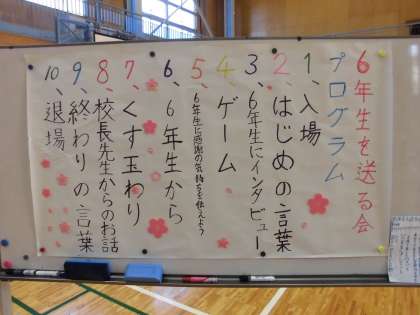 6年生を送る会
プログラム
1、入場
2、はじめの言葉
3、6年生にインタビュー
4、ゲーム
5、6年生に感謝の気持ちを伝えよう
6、6年生から
7、くす玉わり
8、校長先生からのお話
9、終わりの言葉
10、退場